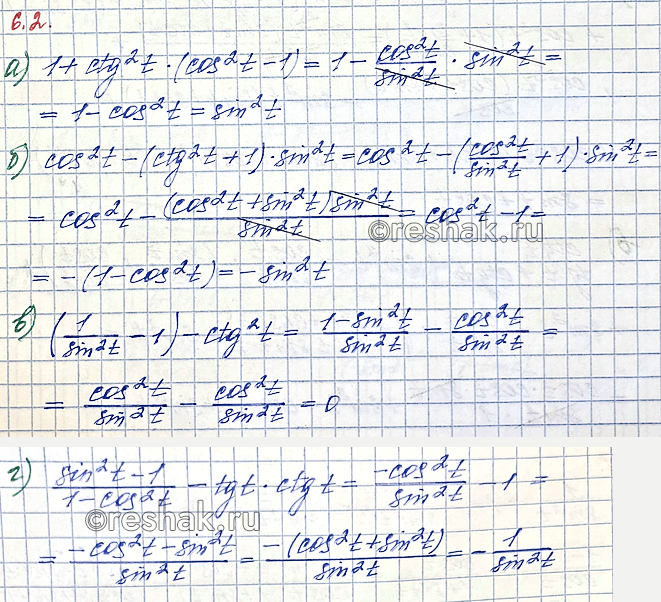 6.2.
а) 1 + ctg²t · (cos²t − 1) = 1 − cos²t/sin²t · sin²t =
= 1 − cos²t = sin²t
б) cos²t − (ctg²t + 1) · sin²t = cos²t − (cos²t/sin²t + 1) · sin²t =
= cos²t − (cos²t + sin²t) sin²t/sin²t = cos²t − 1 =
©reshak.ru
= −(1 − cos²t) = −sin²t
в) (1/sin²t − 1) − ctg²t = 1 − sin²t/sin²t − cos²t/sin²t =
= cos²t/sin²t − cos²t/sin²t = 0
г) sin²t − 1/1 − cos²t − tgt · ctgt = −cos²t/sin²t − 1 =
©reshak.ru
= −cos²t − sin²t/sin²t = −(cos²t + sin²t)/sin²t = − 1/sin²t